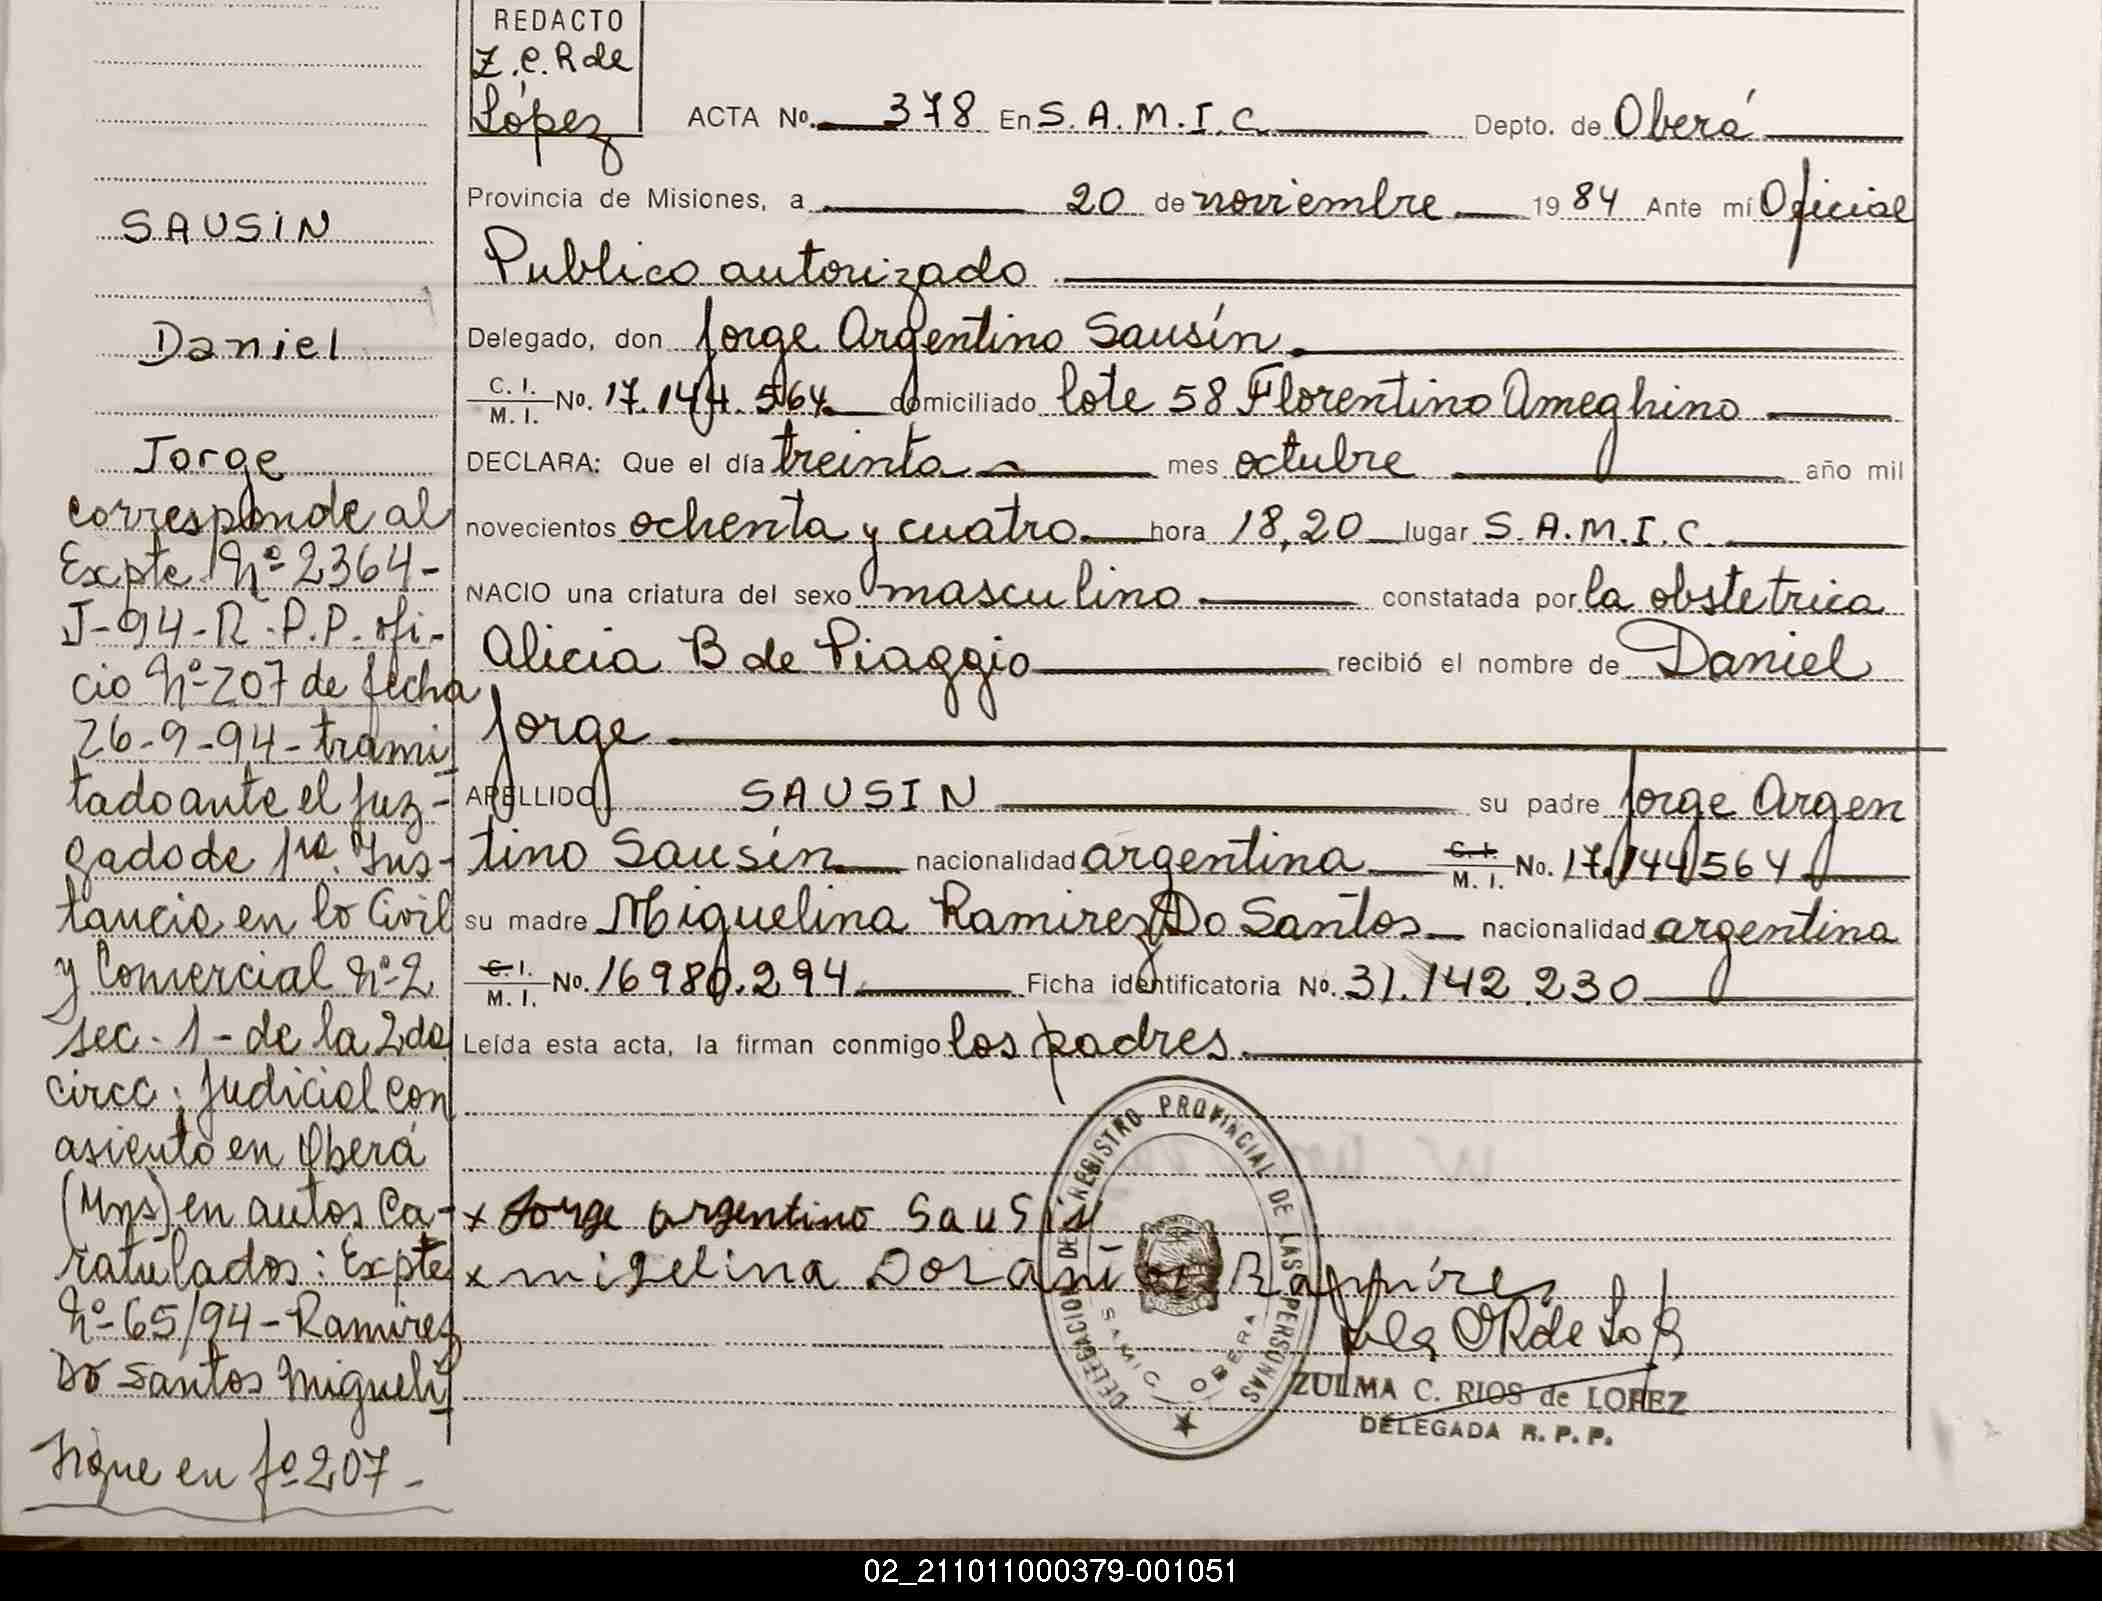 REDACTO
Z.C.R de
López
ACTA No. 378 En S.A.M.I.C. Depto. de Oberá
Provincia de Misiones, a 20 de noviembre 1984 Ante mí Oficial
Publico autorizado
Delegado, don Jorge Argentino Sausín
C. I. / M. I. No. 17.144.564 domiciliado lote 58 Florentino Ameghino
DECLARA: Que el día treinta mes octubre año mil
novecientos ochenta y cuatro hora 18,20 lugar S.A.M.I.C.
NACIO una criatura del sexo masculino constatada por la obstetrica
Alicia B de Piaggio recibió el nombre de Daniel
Jorge
APELLIDO SAUSIN su padre Jorge Argen
tino Sausín nacionalidad argentina C. I. / M. I. No. 17.144564
su madre Miguelina Ramirez Do Santos nacionalidad argentina
C. I. / M. I. No. 16980.294 Ficha identificatoria No. 31.142.230
Leída esta acta, la firman conmigo los padres.
x Jorge argentino Sausín
x migelina Do Ramíres
DELEGACION DE REGISTRO PROVINCIAL DE LAS PERSONAS
SAMIC OBERA
ZULMA C. RIOS de LOPEZ
DELEGADA R. P. P.
SAUSIN
Daniel
Jorge
corresponde al
Expte Nº 2364-
J-94-R.P.P. ofi-
cio Nº 207 de fecha
26-9-94-trami-
tado ante el Juz-
gado de 1ra. Ins-
tancia en lo Civil
y Comercial Nº 2
sec. 1 - de la 2da
circc. Judicial con
asiento en Oberá
(Mns) en autos Ca-
ratulados: Expte
Nº 65/94 - Ramirez
Do Santos Migueli-
Sigue en fº 207 -
02_211011000379-001051